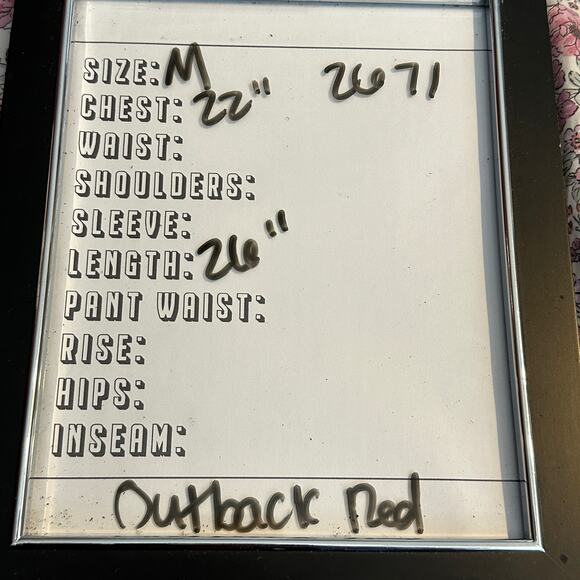 SIZE: M 2671
CHEST: 22"
WAIST:
SHOULDERS:
SLEEVE:
LENGTH: 26"
PANT WAIST:
RISE:
HIPS:
INSEAM:
Outback Red